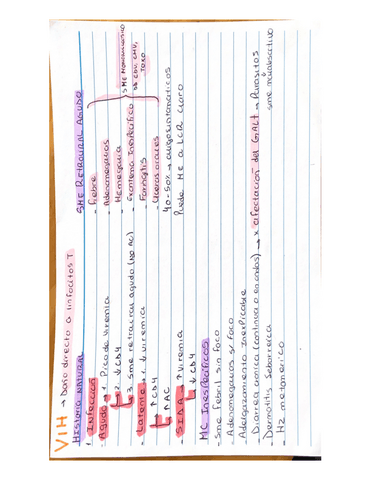 VIH → Daño directo a linfocitos T.
HISTORIA NATURAL
1. INFECCIÓN
- Agudo → 1. Pico de viremia
2. ↓ CD4
3. Sme retroviral agudo (NO AC)
- Latente → 1. ↓ viremia
↑ CD4
↑ AC
- SIDA → ↑ Viremia
↓ CD4
SME RETROVIRAL AGUDO
- Fiebre
- Adenomegalias
- Hemegalia
- Exantema Inespecífico
- Faringitis
- Úlceras orales
SME MONONUCLEÓSICO
CMV,
TOXO
40-50% → oligosintomáticos
Puede
a LCR claro
MC Inespecíficos
- Sme febril sin foco
- Adenomegalias s/ foco
- Adelgazamiento Inexplicable
- Diarrea crónica (continua o en brotes) → x afectación del GALT → Parásitos
sme malabsortivo
- Dermatitis Seborreica
- HZ metamérico